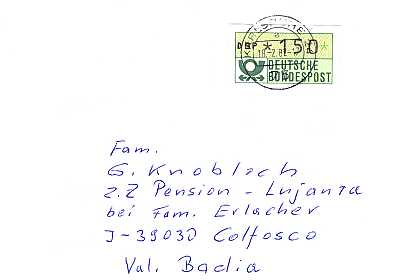 KARLSRUHE
DBP * 150 *
DEUTSCHE
BUNDESPOST
Fam.
G. Knobloch
z.Z Pension - Lujanta
bei Fam. Erlacher
I-39030 Colfosco
Val. Badia